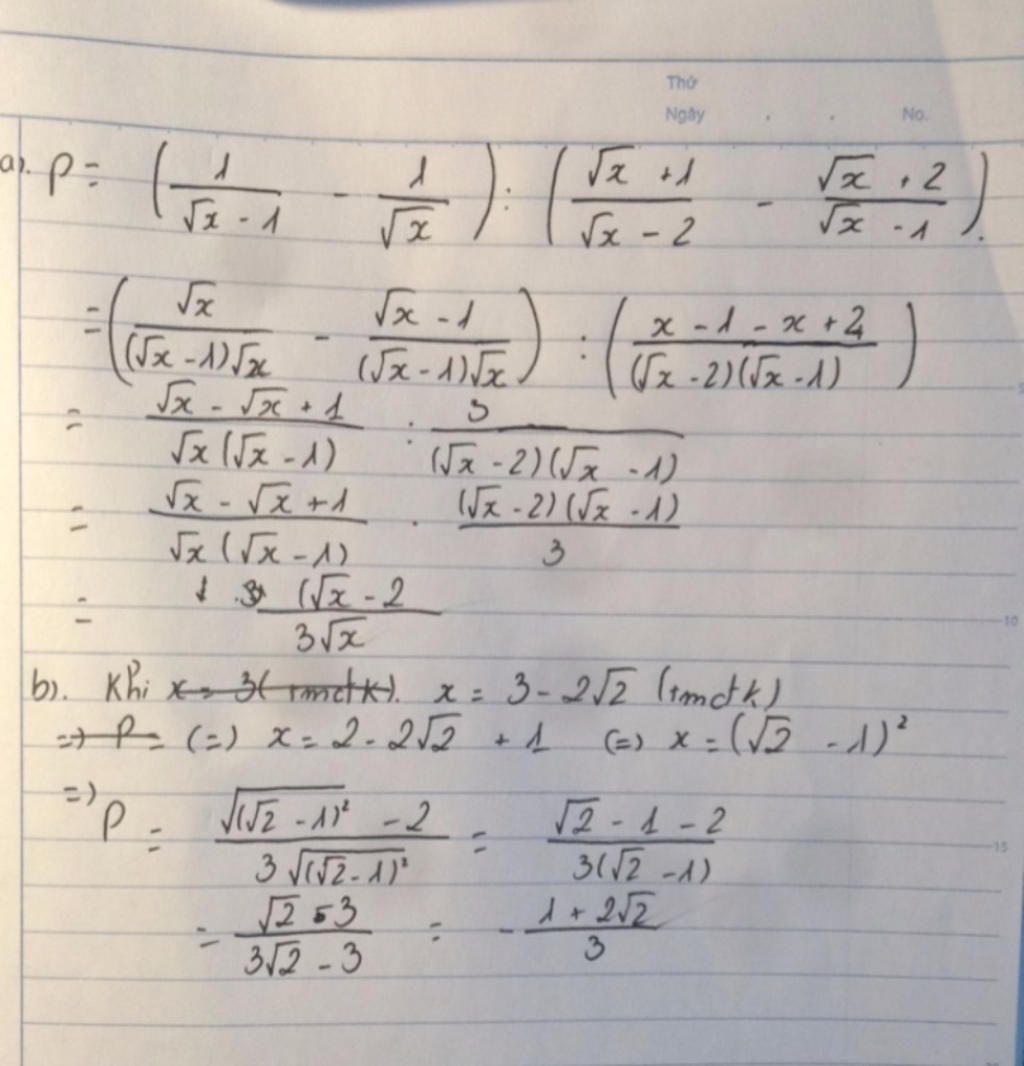 Thứ
Ngày . . No.
a). P = (1/(√x - 1) - 1/√x) : ((√x + 1)/(√x - 2) - (√x + 2)/(√x - 1)).
= (√x/((√x - 1)√x) - (√x - 1)/((√x - 1)√x)) : ((x - 1 - x + 4)/((√x - 2)(√x - 1)))
5
= (√x - √x + 1)/(√x(√x - 1)) : 3/((√x - 2)(√x - 1))
= (√x - √x + 1)/(√x(√x - 1)) . ((√x - 2)(√x - 1))/3
= (√x - 2/3√x
10
b). Khi x = 3 (tmđk). x = 3 - 2√2 (tmđk)
=> P = (=) x = 2 - 2√2 + 1 (=) x = (√2 - 1)²
=> P = (√(√2 - 1)² - 2)/(3√(√2 - 1)²) = (√2 - 1 - 2)/(3(√2 - 1))
15
= (√2 - 3)/(3√2 - 3) = - (1 + 2√2)/3